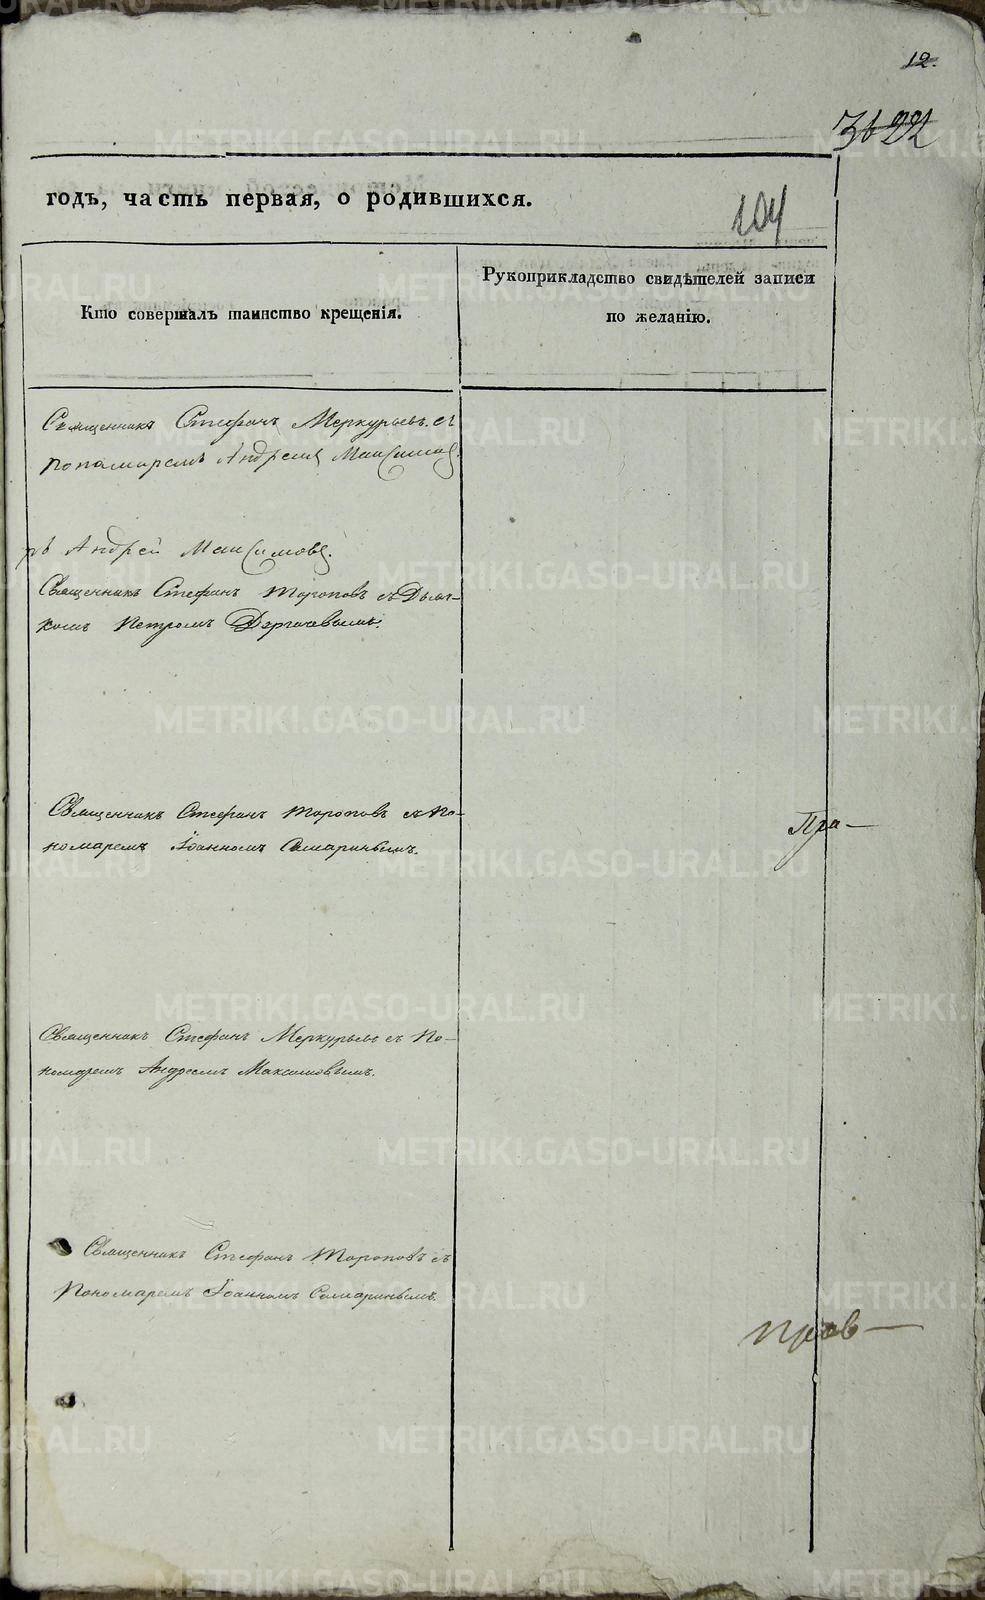 12.
3622
годъ, часть первая, о родившихся.
104
Кто совершалъ таинство крещенія.
Рукоприкладство свидѣтелей записи
по желанію.
Священникъ Стефанъ Меркурьевъ съ
понамаремъ Андреемъ Максимов
ръ Андрей Максимовъ.
Священникъ Стефанъ Тороповъ съ Дьяч-
комъ Петромъ Дергачевымъ.
Священникъ Стефанъ Тороповъ съ По-
номаремъ Іоанномъ Самаринымъ.
Пра-
Священникъ Стефанъ Меркурьевъ съ По-
номаремъ Андреемъ Максимовымъ.
Священникъ Стефанъ Тороповъ съ
Пономаремъ Іоанномъ Самаринымъ.
прав-
METRIKI.GASO-URAL.RU